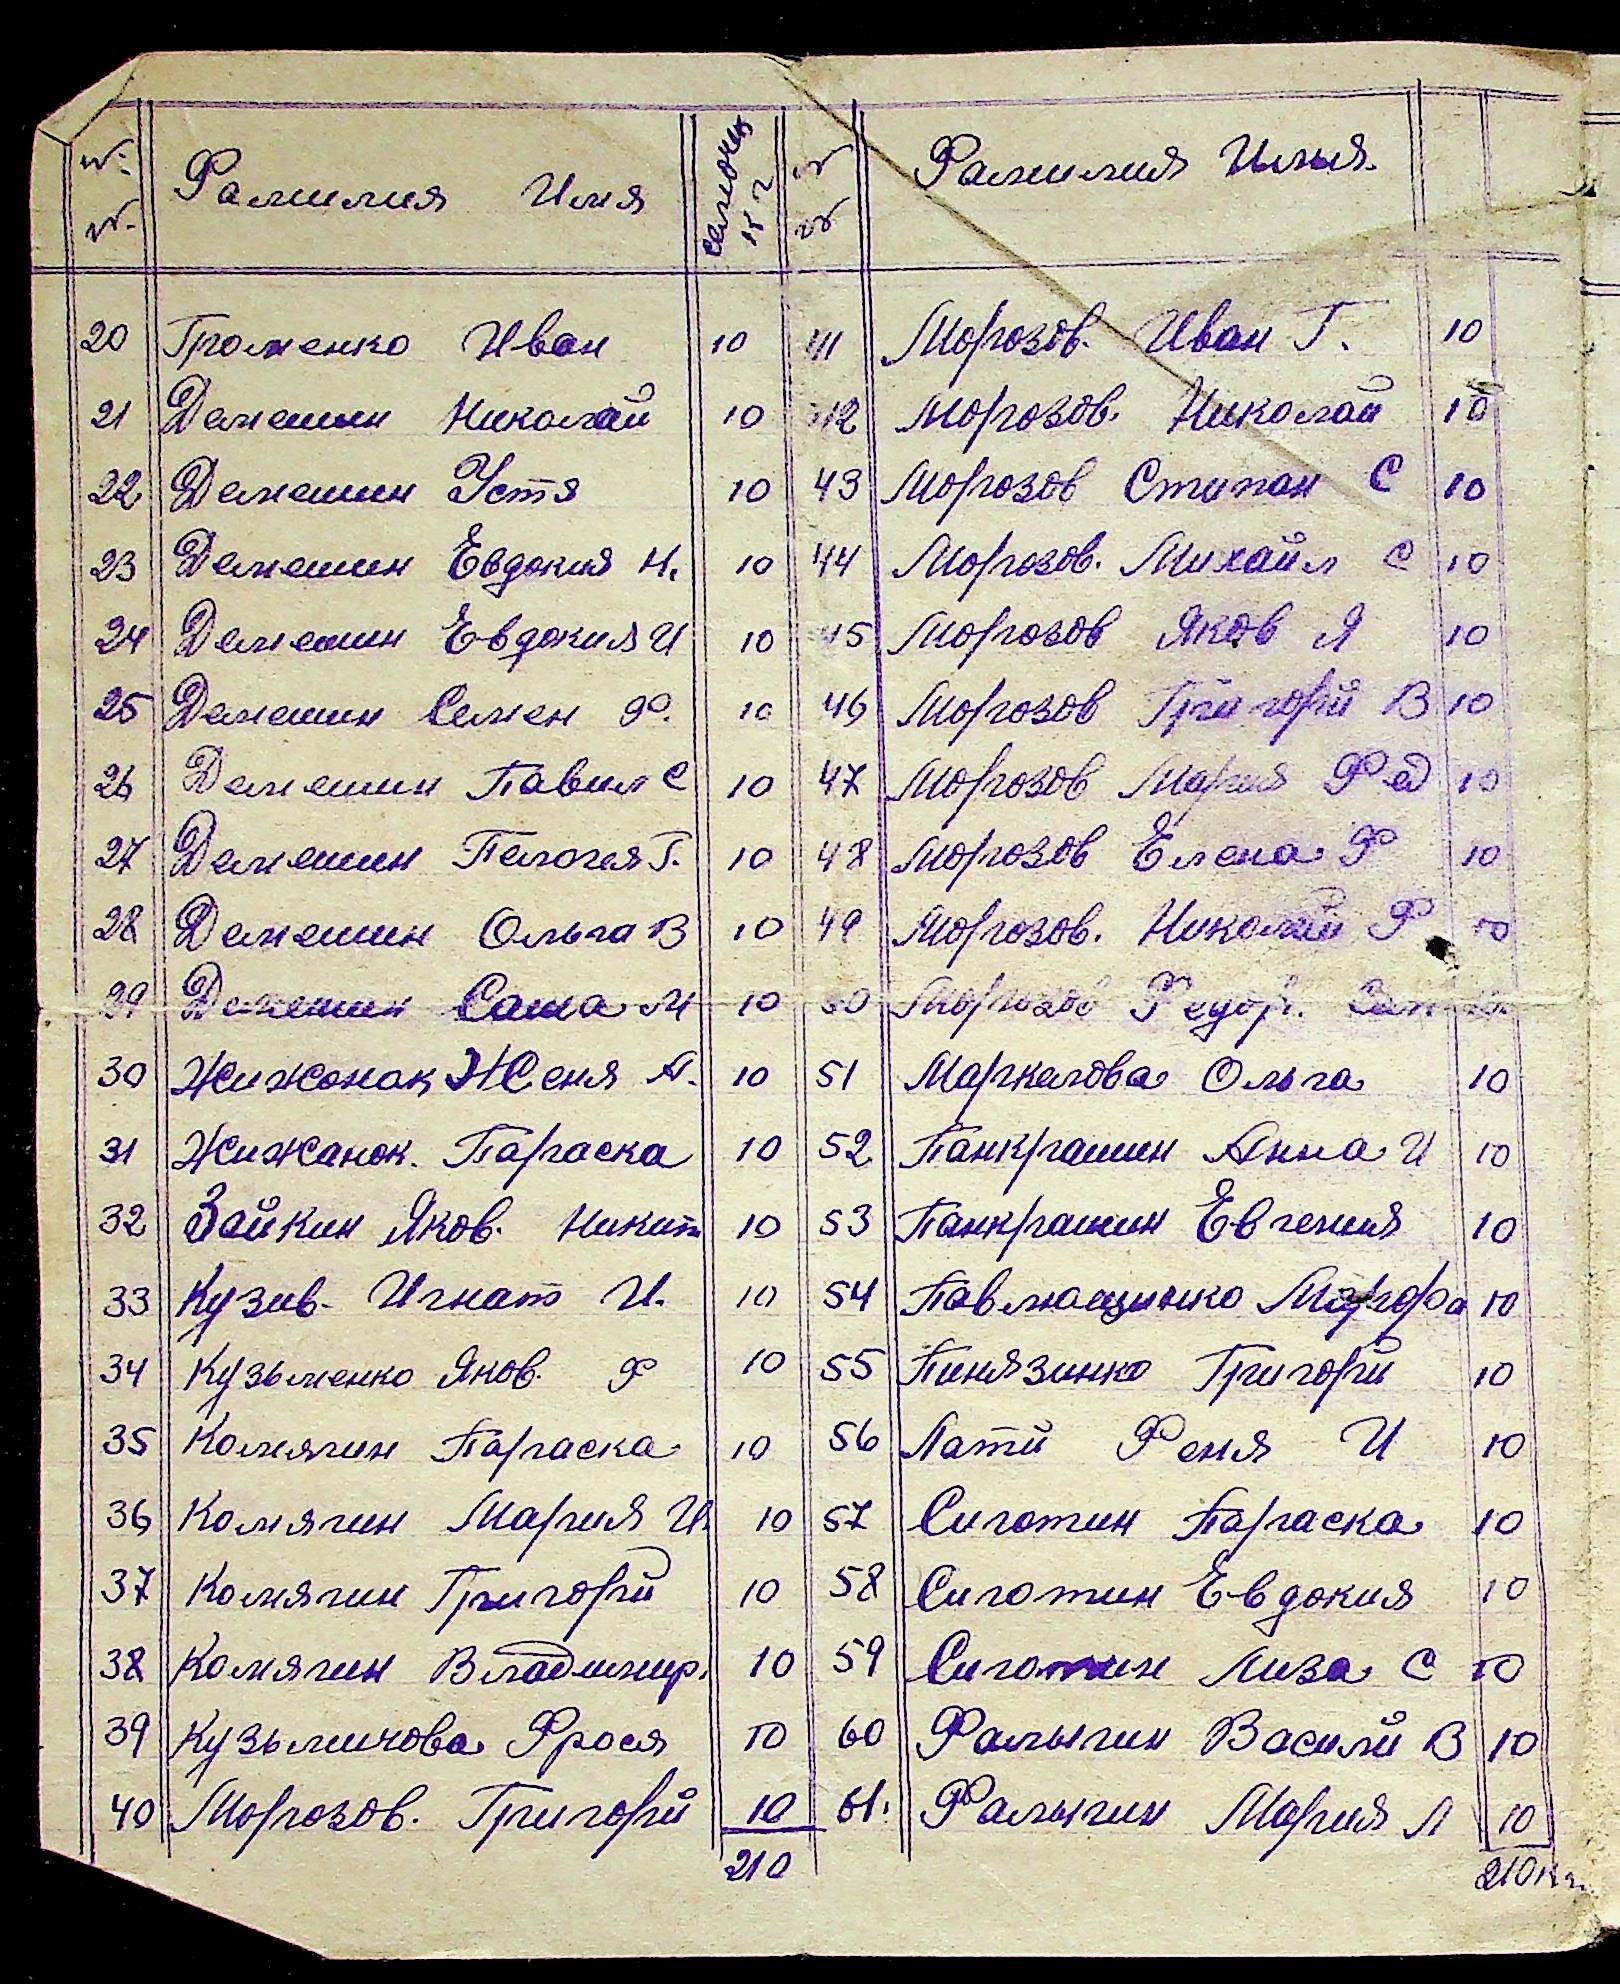 № Фамилия Имя семечек кг
№
20 Громенко Иван 10
21 Демешин Николай 10
22 Демешин Устя 10
23 Демешин Евдокия Н. 10
24 Демешин Евдокия И 10
25 Демешин Семен Ф. 10
26 Демешин Павил С 10
27 Демешин Пелогея Г. 10
28 Демешин Ольга В 10
29 Демешин Саша М 10
30 Жижонок Женя А. 10
31 Жижанок. Параска 10
32 Зайкин Яков. Никит 10
33 Кузив. Игнат И. 10
34 Кузьменко Яков. Ф 10
35 Комягин Параска 10
36 Комягин Мария И. 10
37 Комягин Григорй 10
38 Комягин Владимир. 10
39 Кузьмичова Фрося 10
40 Морозов. Григорй 10
210
№ Фамилия Имя.
№
41 Морозов. Иван Г. 10
42 Морозов. Николай 10
43 Морозов Стипан С 10
44 Морозов. Михайл С 10
45 Морозов Яков Я 10
46 Морозов Григорй В 10
47 Морозов Мария Фед 10
48 Морозов Елена Ф 10
49 Морозов. Николай Ф 10
50 Морозов Федор. 10
51 Маркелова Ольга 10
52 Панкрашин Анна И 10
53 Панкрашин Евгения 10
54 Павлющинко Марфа 10
55 Пинязинко Григорй 10
56 Латй Феня И 10
57 Сиготин Параска 10
58 Сиготин Евдокия 10
59 Сиготин Лиза С 10
60 Фалыгин Василй В 10
61. Фалыгин Мария Л 10
210 кг.